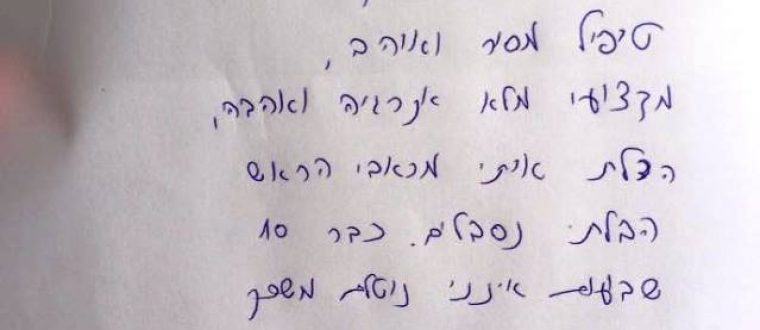 טיפול מסור ואוהב,
מקצועי מלא אנרגיה ואהבה,
הצלת אותי מכאבי הראש
הבלתי נסבלים. כבר 10
שבועות אינני נוטלת משכך